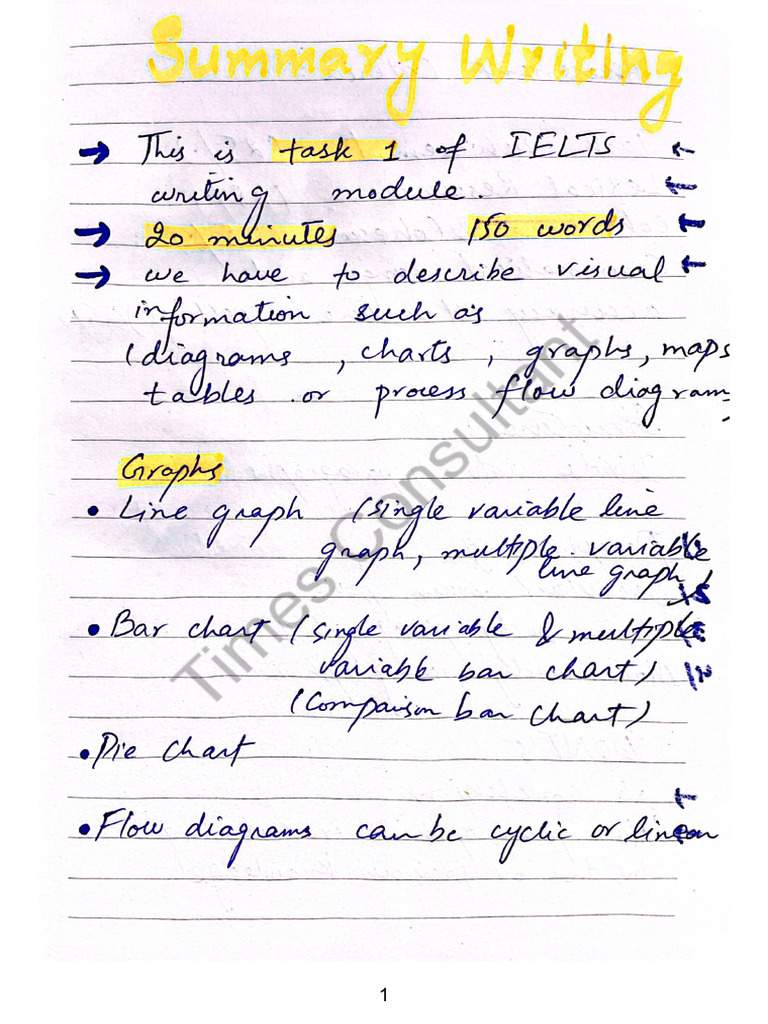 Summary Writing
→ This is task 1 of IELTS ←
writing module. ←
→ 20 minutes 150 words ←
→ we have to describe visual ←
information such as
(diagrams, charts, graphs, maps
tables or process flow diagram
Graphs
• Line graph (single variable line
graph, multiple variable
line graph)
• Bar chart (single variable & multiple
variable bar chart)
(Comparison bar chart)
• Pie chart
• Flow diagrams can be cyclic or linear
Times Consultant
1